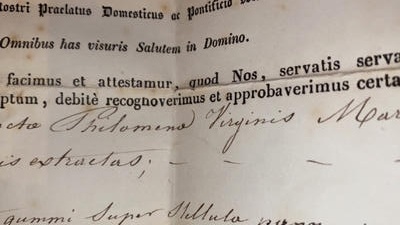 ostri Praelatus Domesticus ac Pontificio
Omnibus has visuris Salutem in Domino.
facimus et attestamur, quod Nos, servatis serva
ptum, debitè recognoverimus et approbaverimus certa
ctæ Philomena Virginis Mar
is extractas;
gummi super Stellula